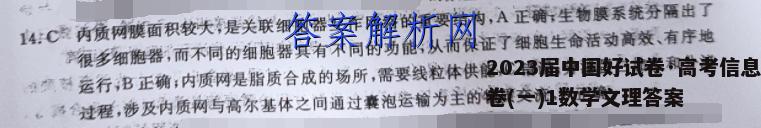 14. C 内质网膜面积较大,是关联细胞器
重要结构,A 正确;生物膜系统分隔出了
答案解析网
很多细胞器,而不同的细胞器具有不同的功能,从而保证了细胞生命活动高效、有序地
运行,B 正确;内质网是脂质合成的场所,需要线粒体供能
2023届中国好试卷·高考信息
过程,涉及内质网与高尔基体之间通过囊泡运输为主的
卷(一)1数学文理答案